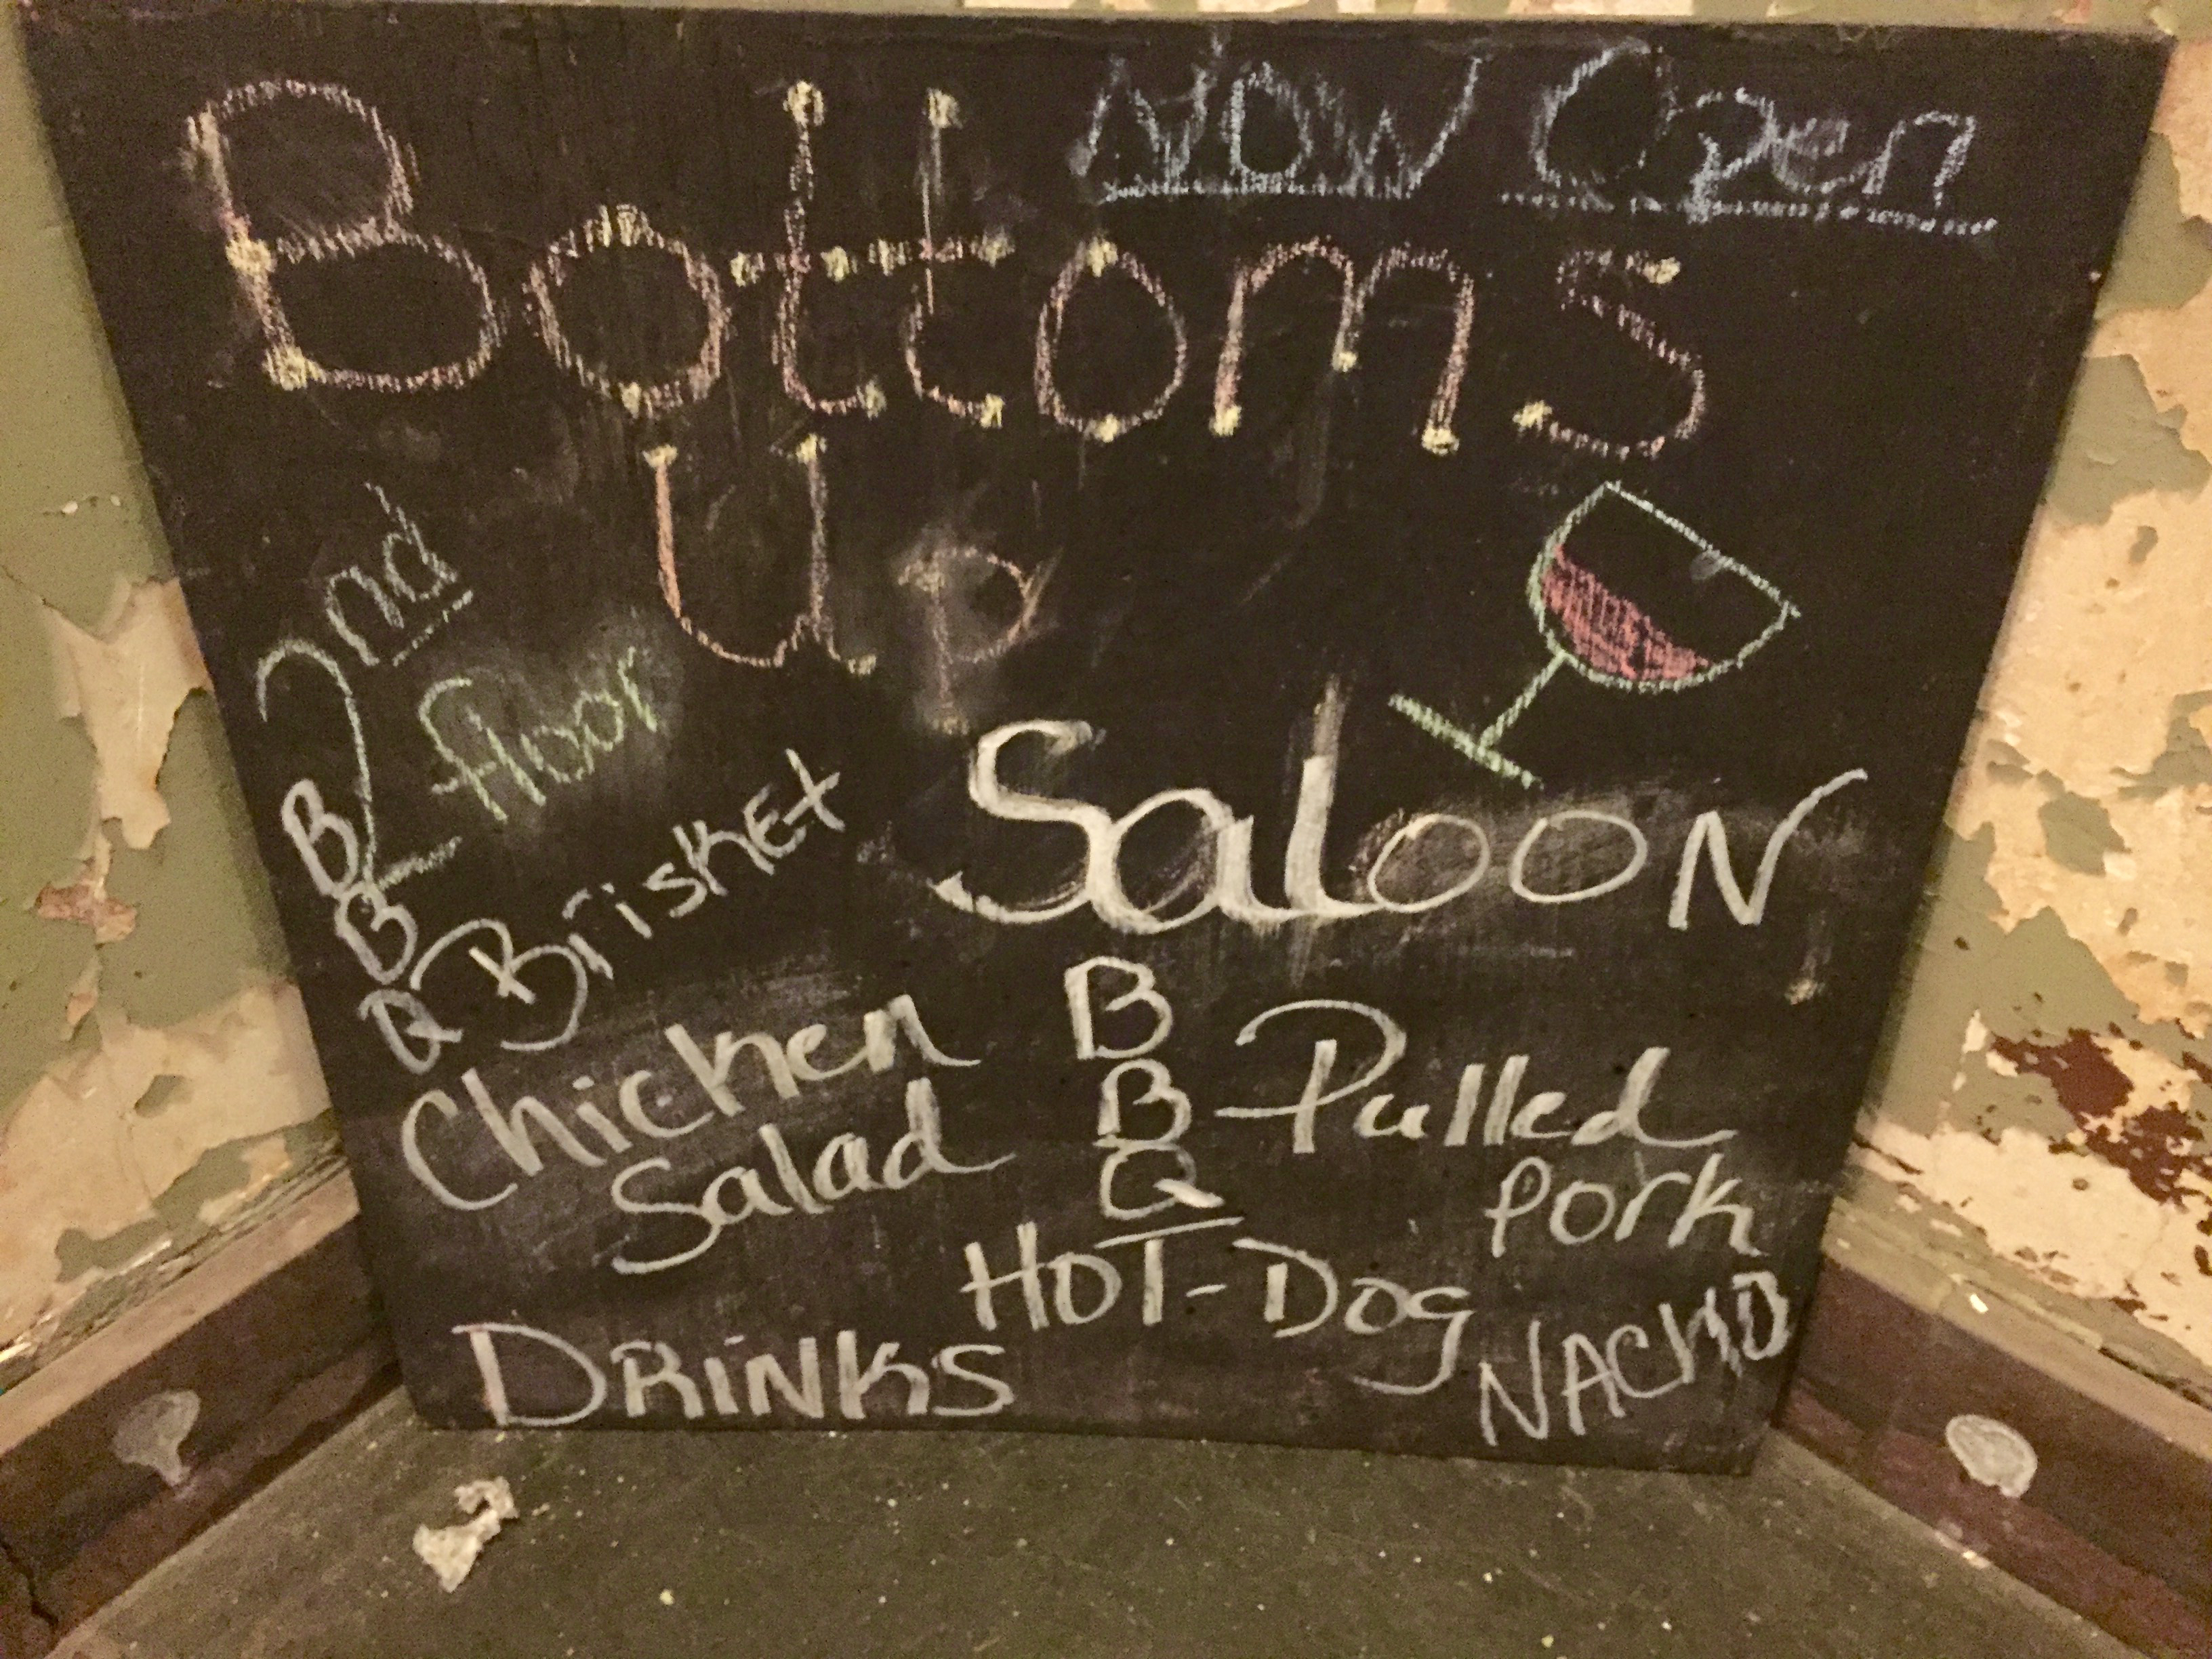 Now Open
Bottoms
Up
2nd
floor
Saloon
BBQ Brisket
Chicken
Salad
BBQ Pulled
Pork
Hot-Dog
Nacho
Drinks